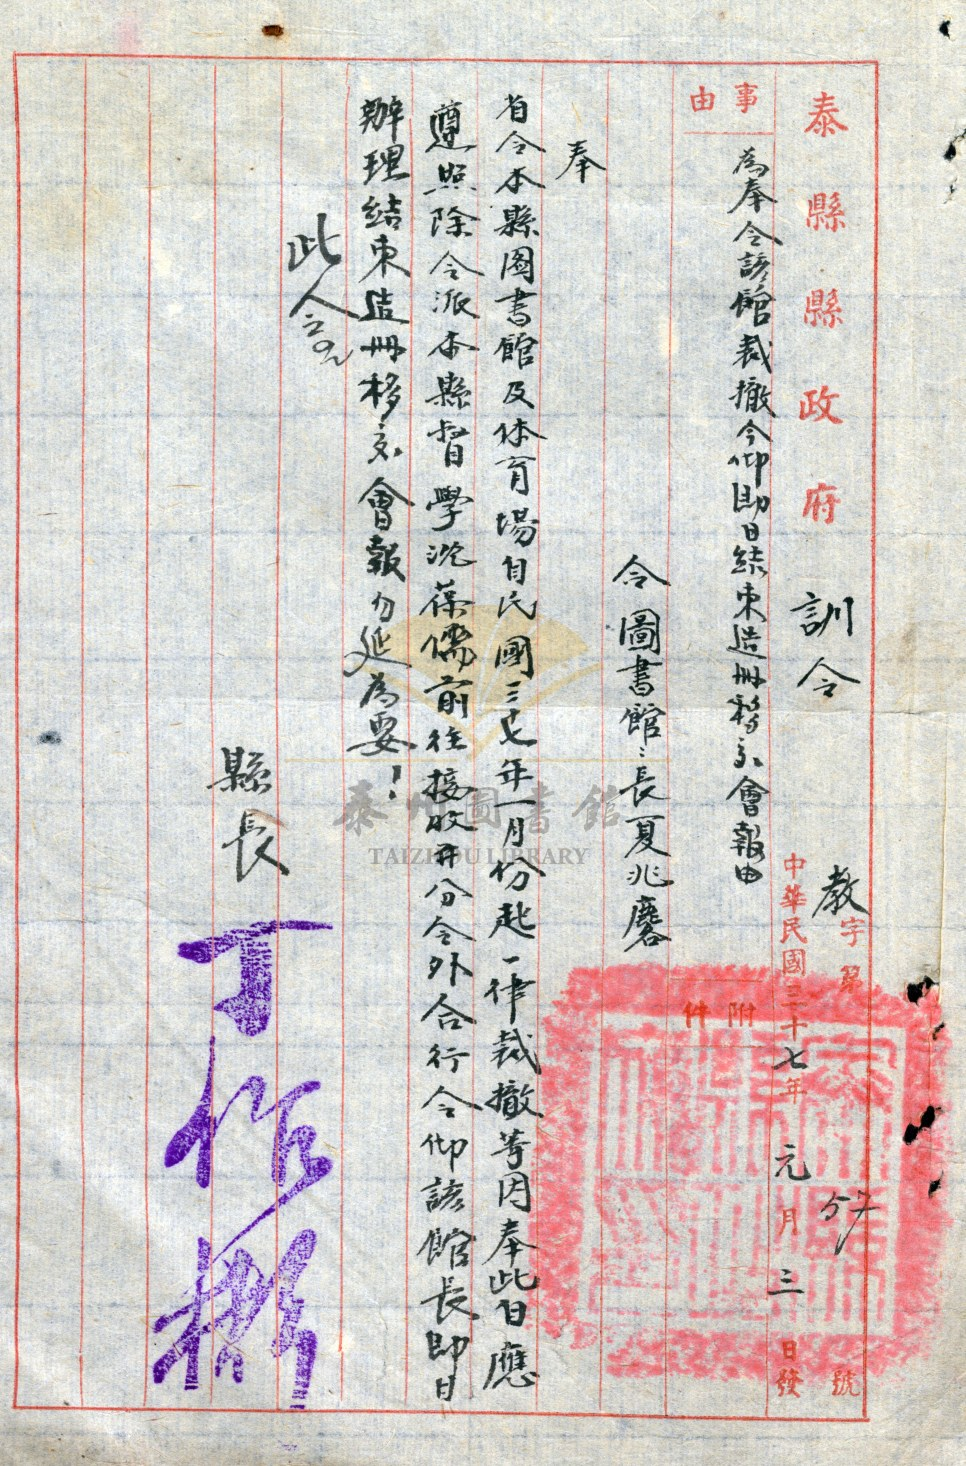 泰縣縣政府訓令
教字第57號
中華民國三十七年元月三日發
事由
為奉令該館裁撤令仰即日結束造冊移交會報由
附件
令圖書館館長夏兆麐
奉
省令本縣图書館及体育場自民國三七年一月份起一律裁撤等因奉此自應
遵照除令派本縣督學沈葆儒前往接收并分令外合行令仰該館長即日
辦理結束造冊移交會報勿延為要！
此令
縣長
丁作彬
泰州圖書館
TAIZHOU LIBRARY